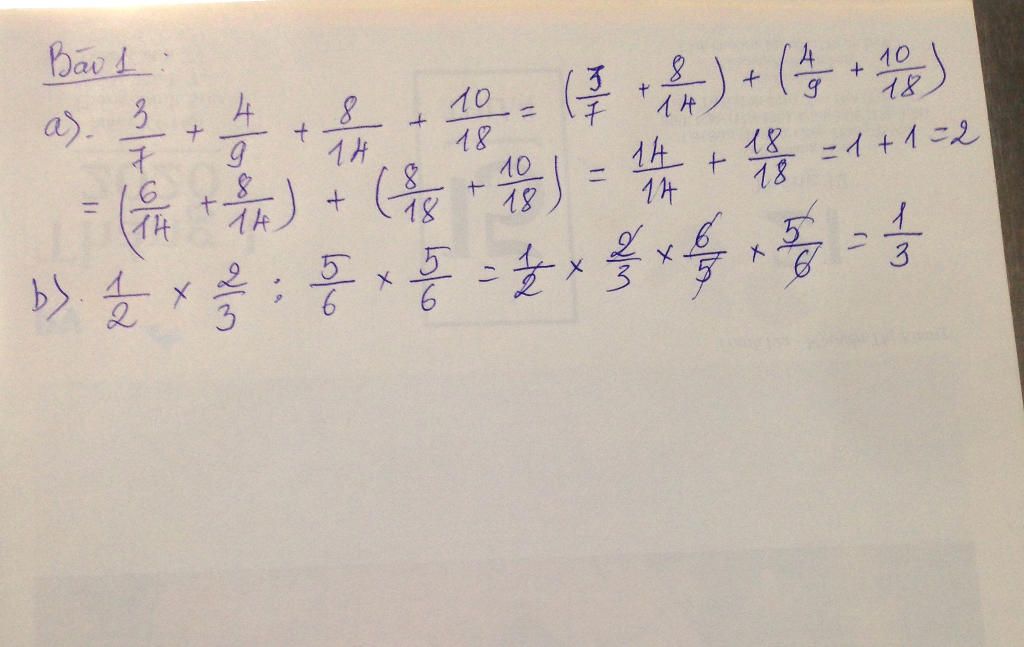 Bão 1:
a). 3/7 + 4/9 + 8/14 + 10/18 = (3/7 + 8/14) + (4/9 + 10/18)
= (6/14 + 8/14) + (8/18 + 10/18) = 14/14 + 18/18 = 1 + 1 = 2
b). 1/2 × 2/3 : 5/6 × 5/6 = 1/2 × 2/3 × 6/5 × 5/6 = 1/3